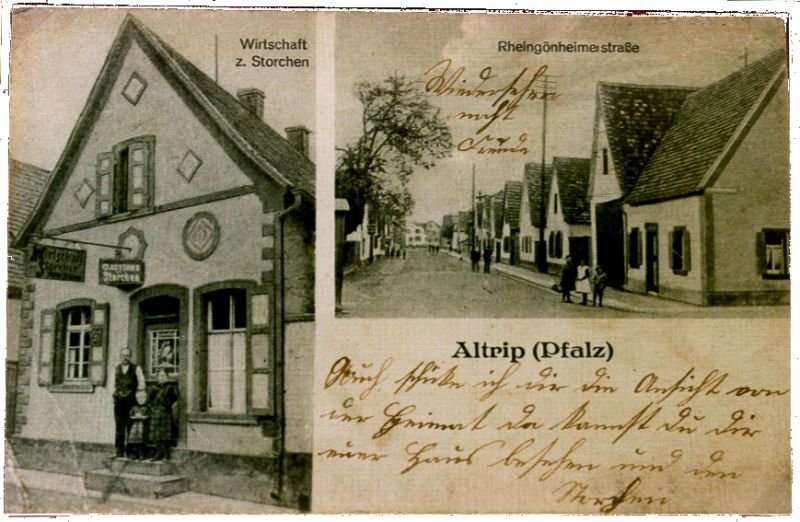 Wirtschaft
z. Storchen
Rheingönheimerstraße
Wiedersehen
macht
Freude
Wirtschaft
Storchen
GASTHAUS
Storchen
Altrip (Pfalz)
Auch schicke ich dir die Ansicht von
der Heimat da kannst du dir
euer Haus besehen und den
Storchen